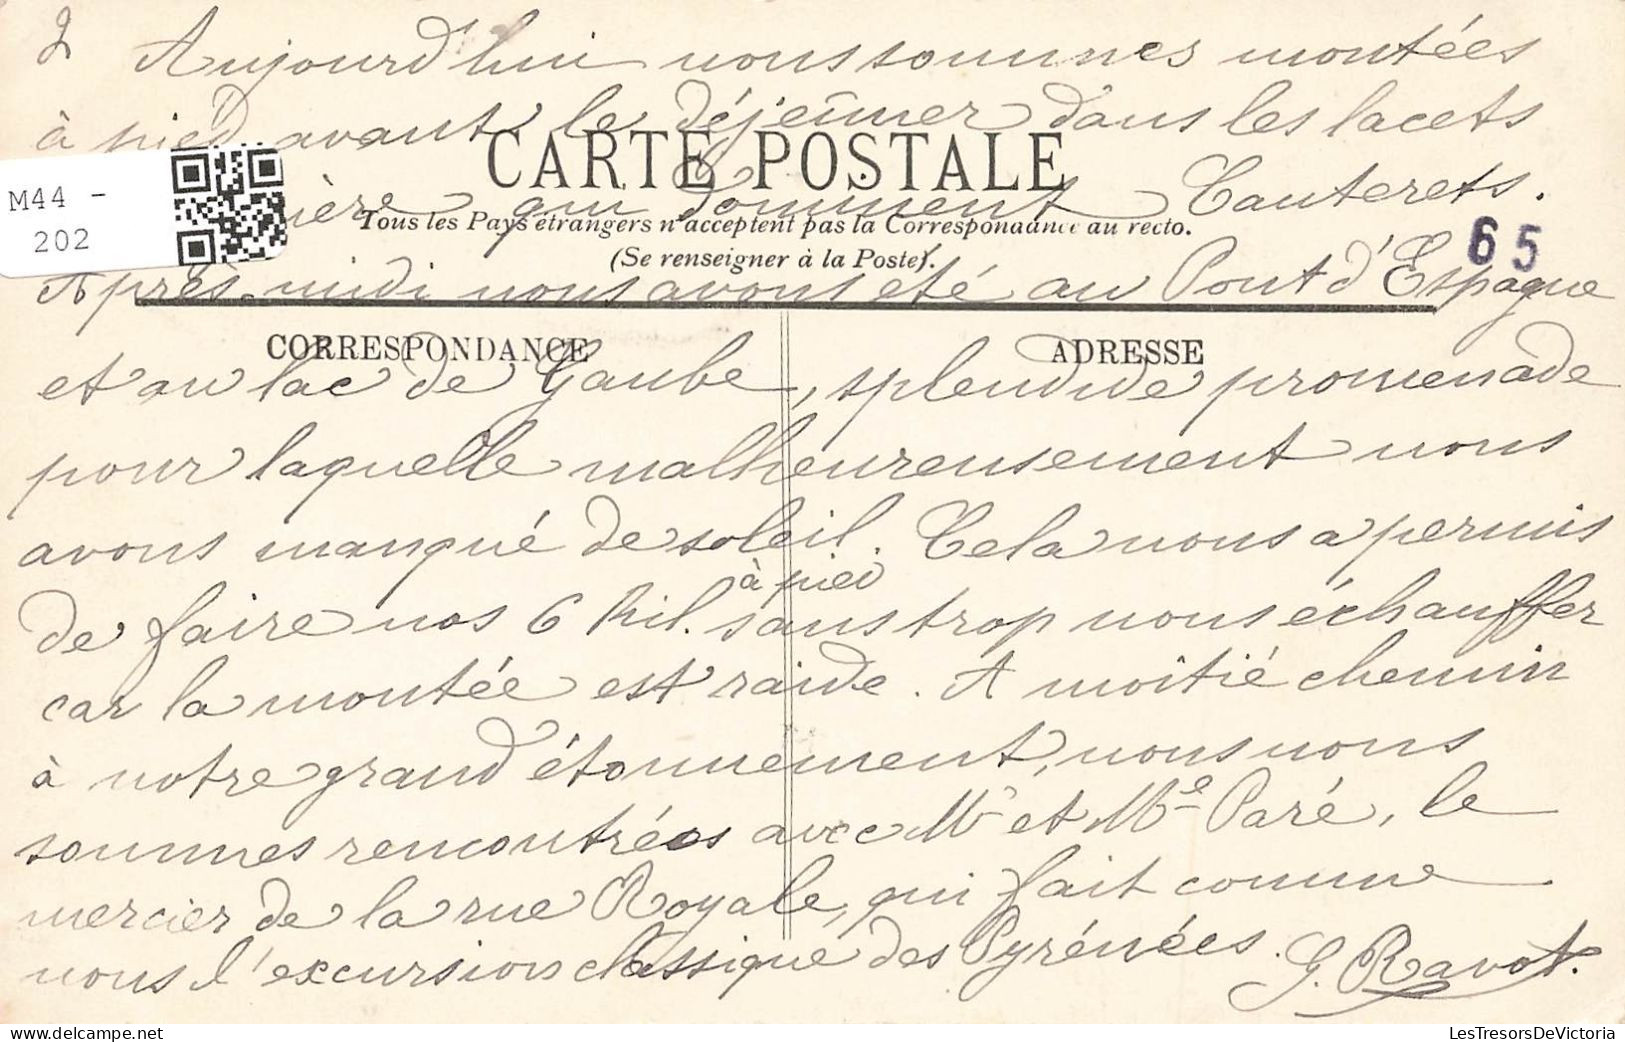 2 Aujourd'hui nous sommes montées
à pied avant le déjeûner dans les lacets
CARTE POSTALE
M44 -
202
qui dominent Cauterets.
Tous les Pays étrangers n'acceptent pas la Correspondance au recto.
(Se renseigner à la Poste).
65
Après-midi nous avons été au Pont d'Espagne
CORRESPONDANCE
ADRESSE
et au lac de Gaube, splendide promenade
pour laquelle malheureusement nous
avons manqué de soleil. Cela nous a permis
à pied
de faire nos 6 kil. sans trop nous échauffer
car la montée est raide. A moitié chemin
à notre grand étonnement, nous nous
sommes rencontrées avec Mr et Me Paré, le
mercier de la rue Royale, qui fait comme
nous l'excursion classique des Pyrénées. G. Ravot.
LesTresorsDeVictoria